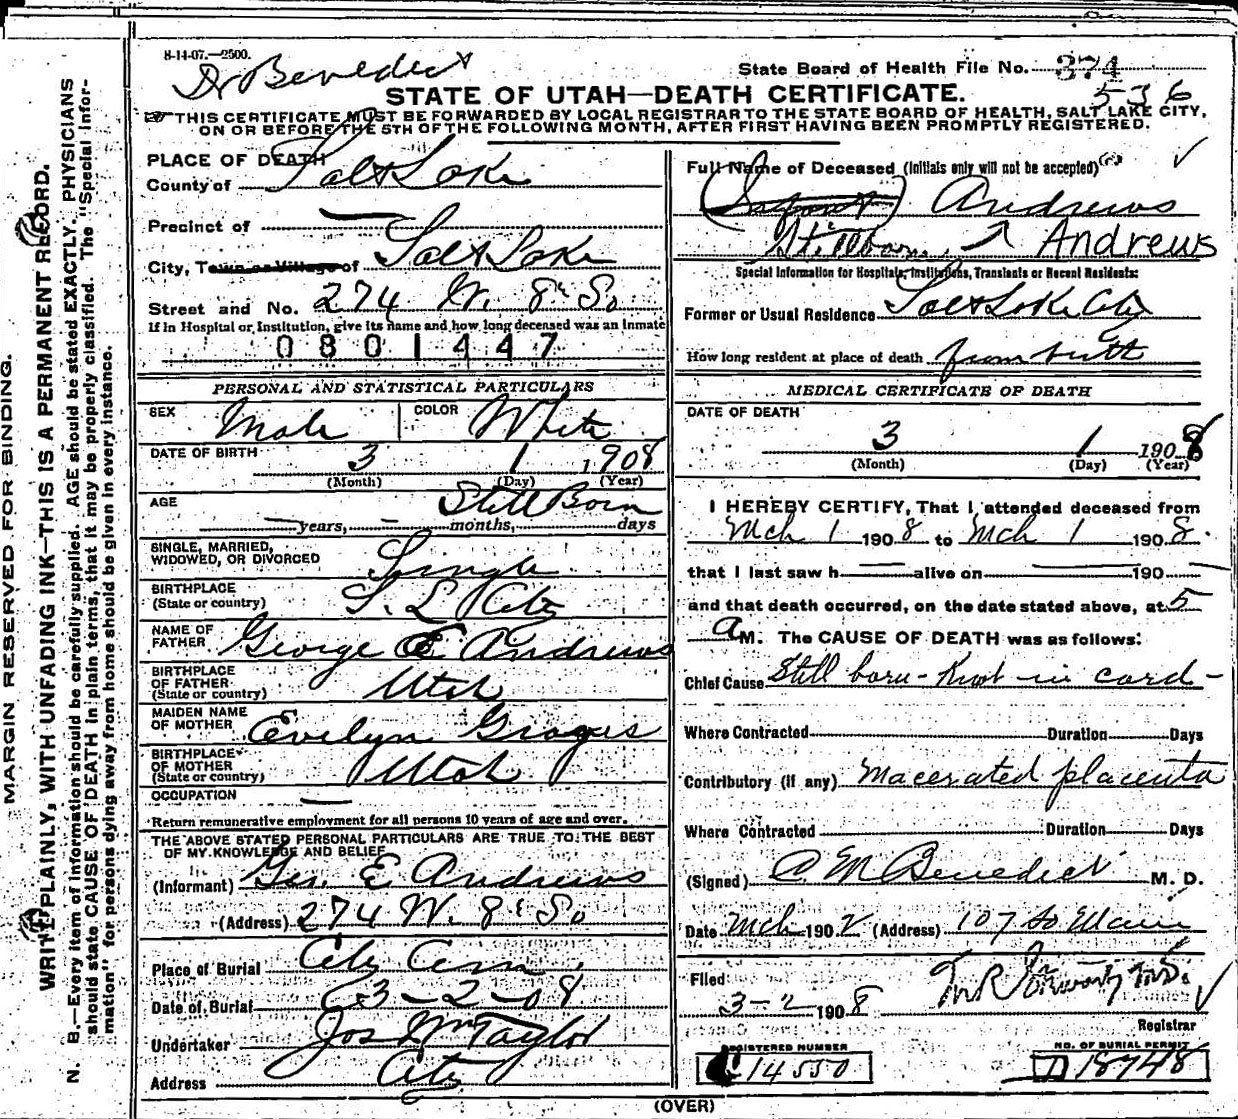 8-14-07.—2500.
Dr Benedict
State Board of Health File No. 374
536
STATE OF UTAH—DEATH CERTIFICATE.
THIS CERTIFICATE MUST BE FORWARDED BY LOCAL REGISTRAR TO THE STATE BOARD OF HEALTH, SALT LAKE CITY,
ON OR BEFORE THE 5TH OF THE FOLLOWING MONTH, AFTER FIRST HAVING BEEN PROMPTLY REGISTERED.
MARGIN RESERVED FOR BINDING.
WRITE PLAINLY, WITH UNFADING INK—THIS IS A PERMANENT RECORD.
N. B.—Every item of information should be carefully supplied. AGE should be stated EXACTLY. PHYSICIANS
should state CAUSE OF DEATH in plain terms, that it may be properly classified. The "Special Infor-
mation" for persons dying away from home should be given in every instance.
PLACE OF DEATH
County of Salt Lake
Precinct of —
City, Town or Village of Salt Lake
Street and No. 274 W. 8th So
If in Hospital or Institution, give its name and how long deceased was an inmate
0801447
PERSONAL AND STATISTICAL PARTICULARS
SEX Male COLOR White
DATE OF BIRTH 3 1 1908
(Month) (Day) (Year)
AGE Still Born
— years, — months, days
SINGLE, MARRIED,
WIDOWED, OR DIVORCED Single
BIRTHPLACE
(State or country) S. L. City
NAME OF
FATHER George E Andrews
BIRTHPLACE
OF FATHER
(State or country) Utah
MAIDEN NAME
OF MOTHER Evelyn
BIRTHPLACE
OF MOTHER
(State or country) Utah
OCCUPATION —
Return remunerative employment for all persons 10 years of age and over.
THE ABOVE STATED PERSONAL PARTICULARS ARE TRUE TO THE BEST
OF MY KNOWLEDGE AND BELIEF
(Informant) Geo. E Andrews
(Address) 274 W. 8th So
Place of Burial City Cem
Date of Burial 3-2-08
Undertaker Jos Wm Taylor
Address City
Full Name of Deceased (Initials only will not be accepted)
(Infant) Andrews
Stillborn Andrews
Special Information for Hospitals, Institutions, Transients or Recent Residents:
Former or Usual Residence Salt Lake City
How long resident at place of death from birth
MEDICAL CERTIFICATE OF DEATH
DATE OF DEATH
3 1 1908
(Month) (Day) (Year)
I HEREBY CERTIFY, That I attended deceased from
Mch 1 1908 to Mch 1 1908.
that I last saw h — alive on — 190 —
and that death occurred, on the date stated above, at 5
a M. The CAUSE OF DEATH was as follows:
Chief Cause Still born - Knot in cord -
Where Contracted Duration Days
Contributory (if any) Macerated placenta
Where Contracted Duration Days
(Signed) A M Benedict M. D.
Date Mch 190 2 (Address) 107 So Main
Filed
3-2 1908
Registrar
REGISTERED NUMBER NO. OF BURIAL PERMIT
14550 D 18748
(OVER)